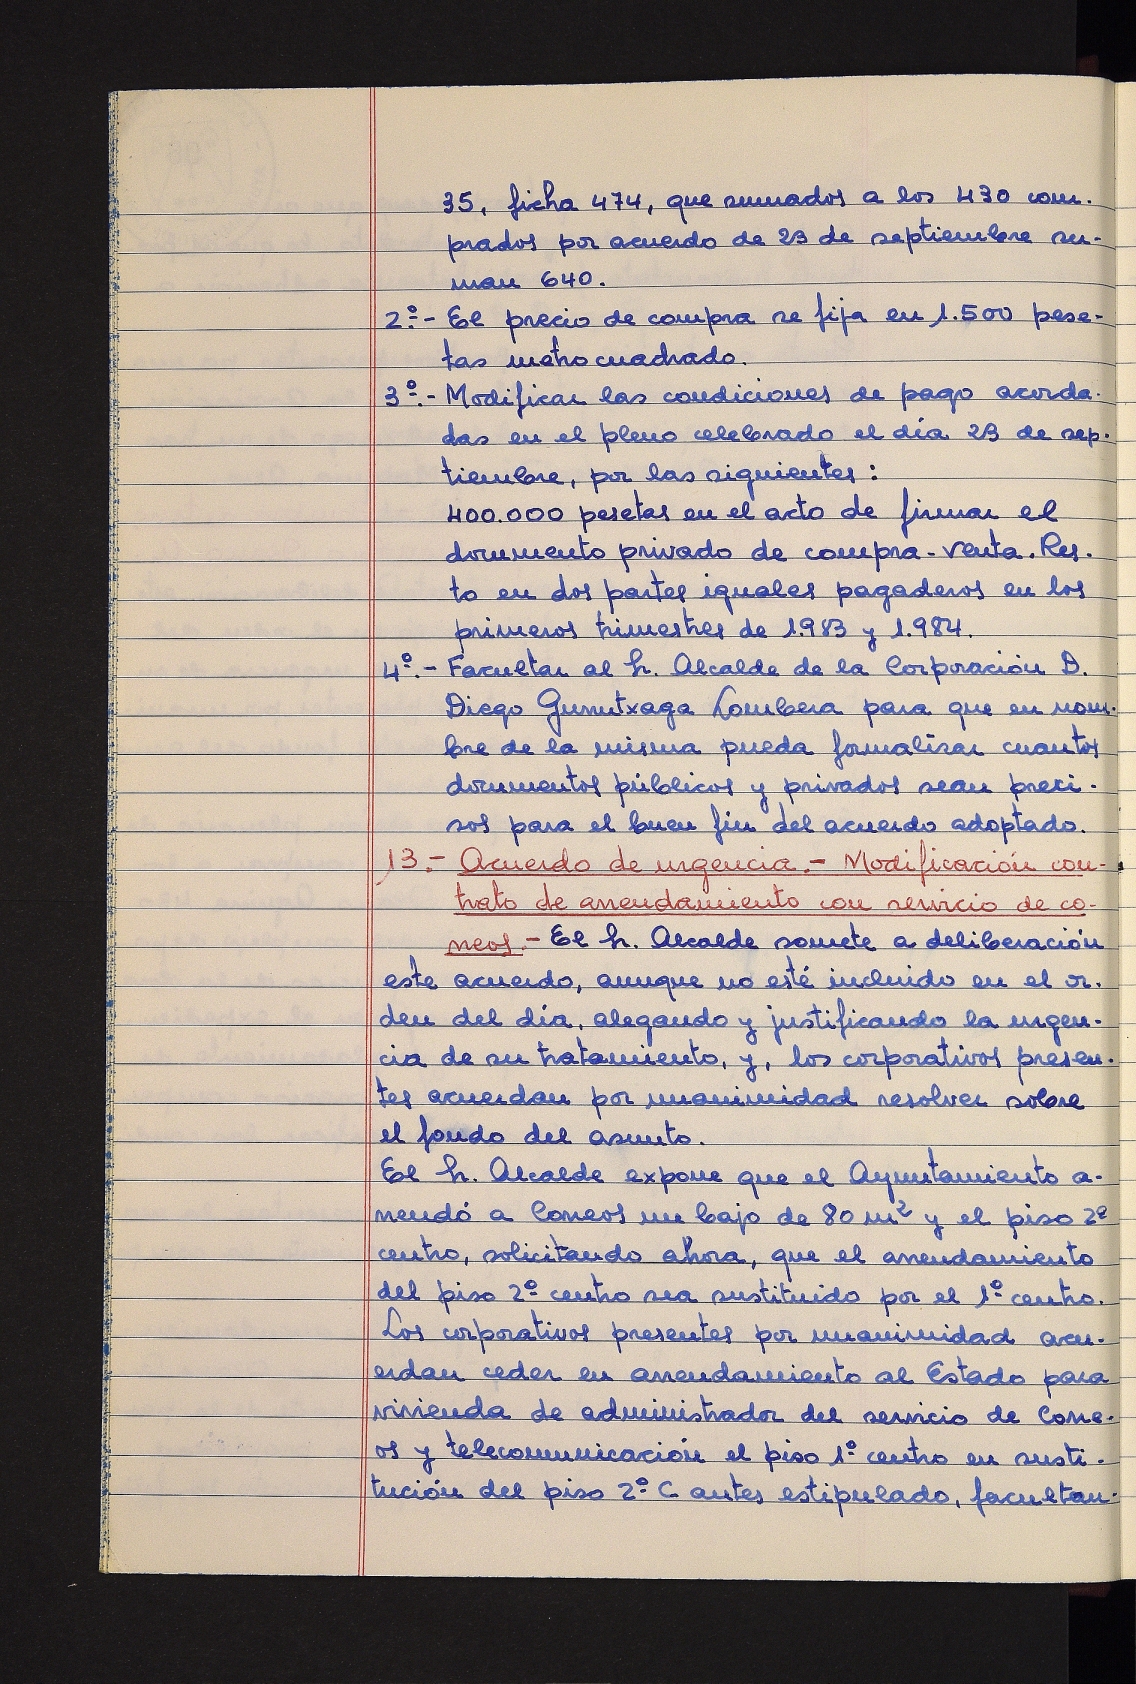 35, ficha 474, que sumados a los 430 com-
prados por acuerdo de 29 de septiembre su-
man 640.
2º.- El precio de compra se fija en 1.500 pese-
tas metro cuadrado.
3º.- Modificar las condiciones de pago acorda-
das en el pleno celebrado el día 29 de sep-
tiembre, por las siguientes:
400.000 pesetas en el acto de firmar el
documento privado de compra-venta. Res-
to en dos partes iguales pagaderos en los
primeros trimestres de 1.983 y 1.984.
4º.- Facultar al h. Alcalde de la Corporación D.
Diego Gurrutxaga Lombera para que en nom-
bre de la misma pueda formalizar cuantos
documentos públicos y privados sean preci-
sos para el buen fin del acuerdo adoptado.
13.- Acuerdo de urgencia.- Modificación con-
trato de arrendamiento con servicio de co-
rreos.- El h. Alcalde somete a deliberación
este acuerdo, aunque no esté incluido en el or-
den del día, alegando y justificando la urgen-
cia de su tratamiento, y, los corporativos presen-
tes acuerdan por unanimidad resolver sobre
el fondo del asunto.
El h. Alcalde expone que el Ayuntamiento a-
rrendó a Correos un bajo de 80 m² y el piso 2º
centro, solicitando ahora, que el arrendamiento
del piso 2º centro sea sustituido por el 1º centro.
Los corporativos presentes por unanimidad acu-
erdan ceder en arrendamiento al Estado para
vivienda de administrador del servicio de Corre-
os y telecomunicación el piso 1º centro en susti-
tución del piso 2º C antes estipulado, facultan-